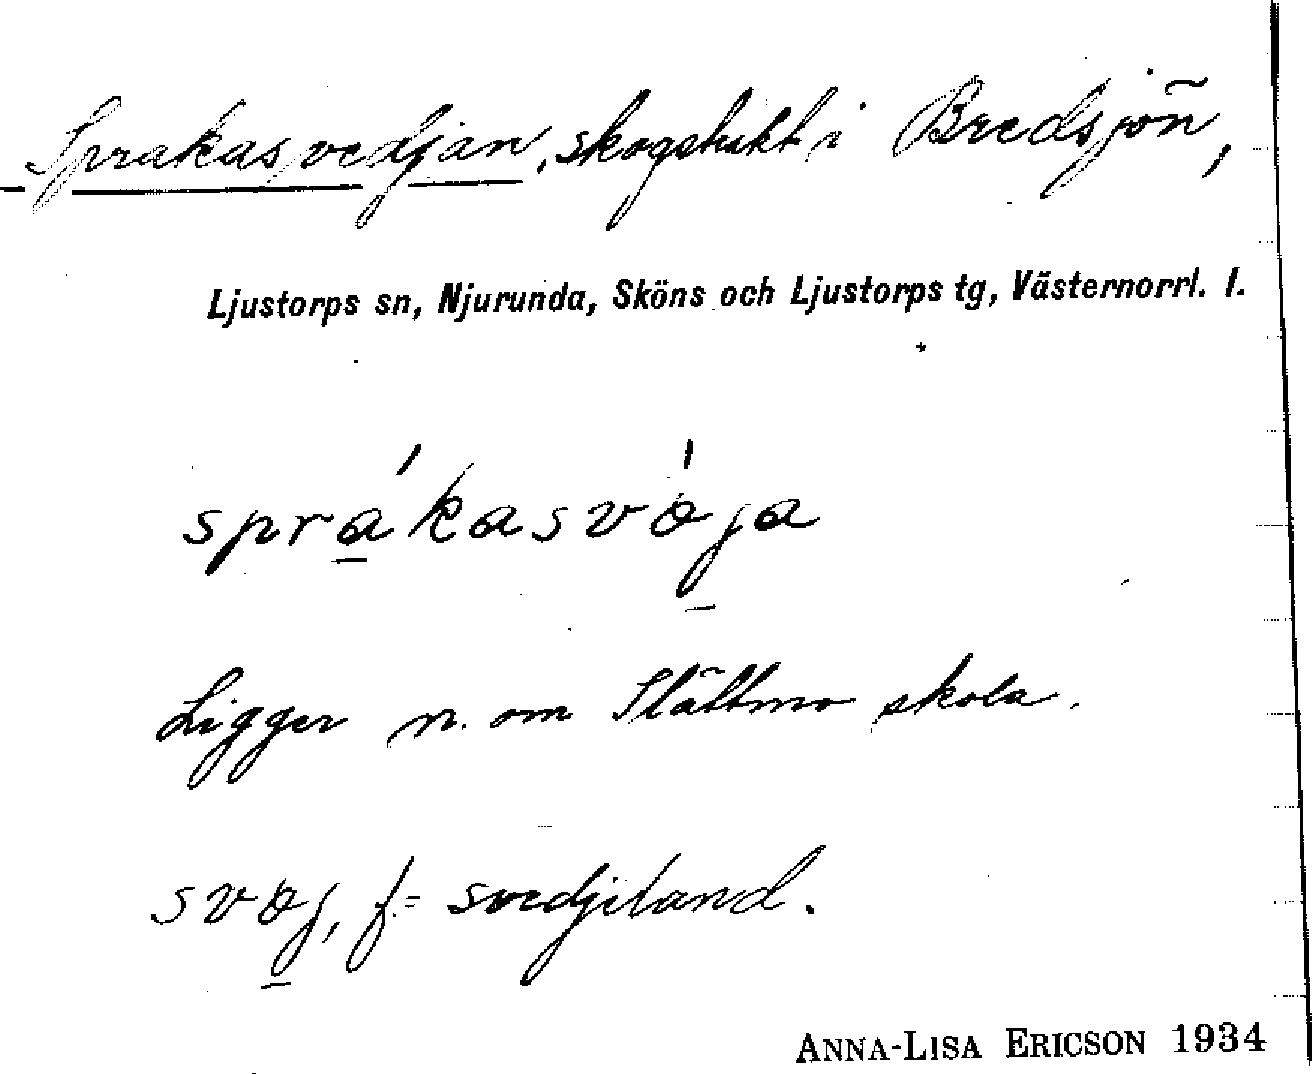 Sprakasvedjan, skogstrakt i Bredsjön,
Ljustorps sn, Njurunda, Sköns och Ljustorps tg, Västernorrl. l.
sprákasvǿja
Ligger n. om Slättmo skola.
svøj, f. = svedjeland.
ANNA-LISA ERICSON 1934